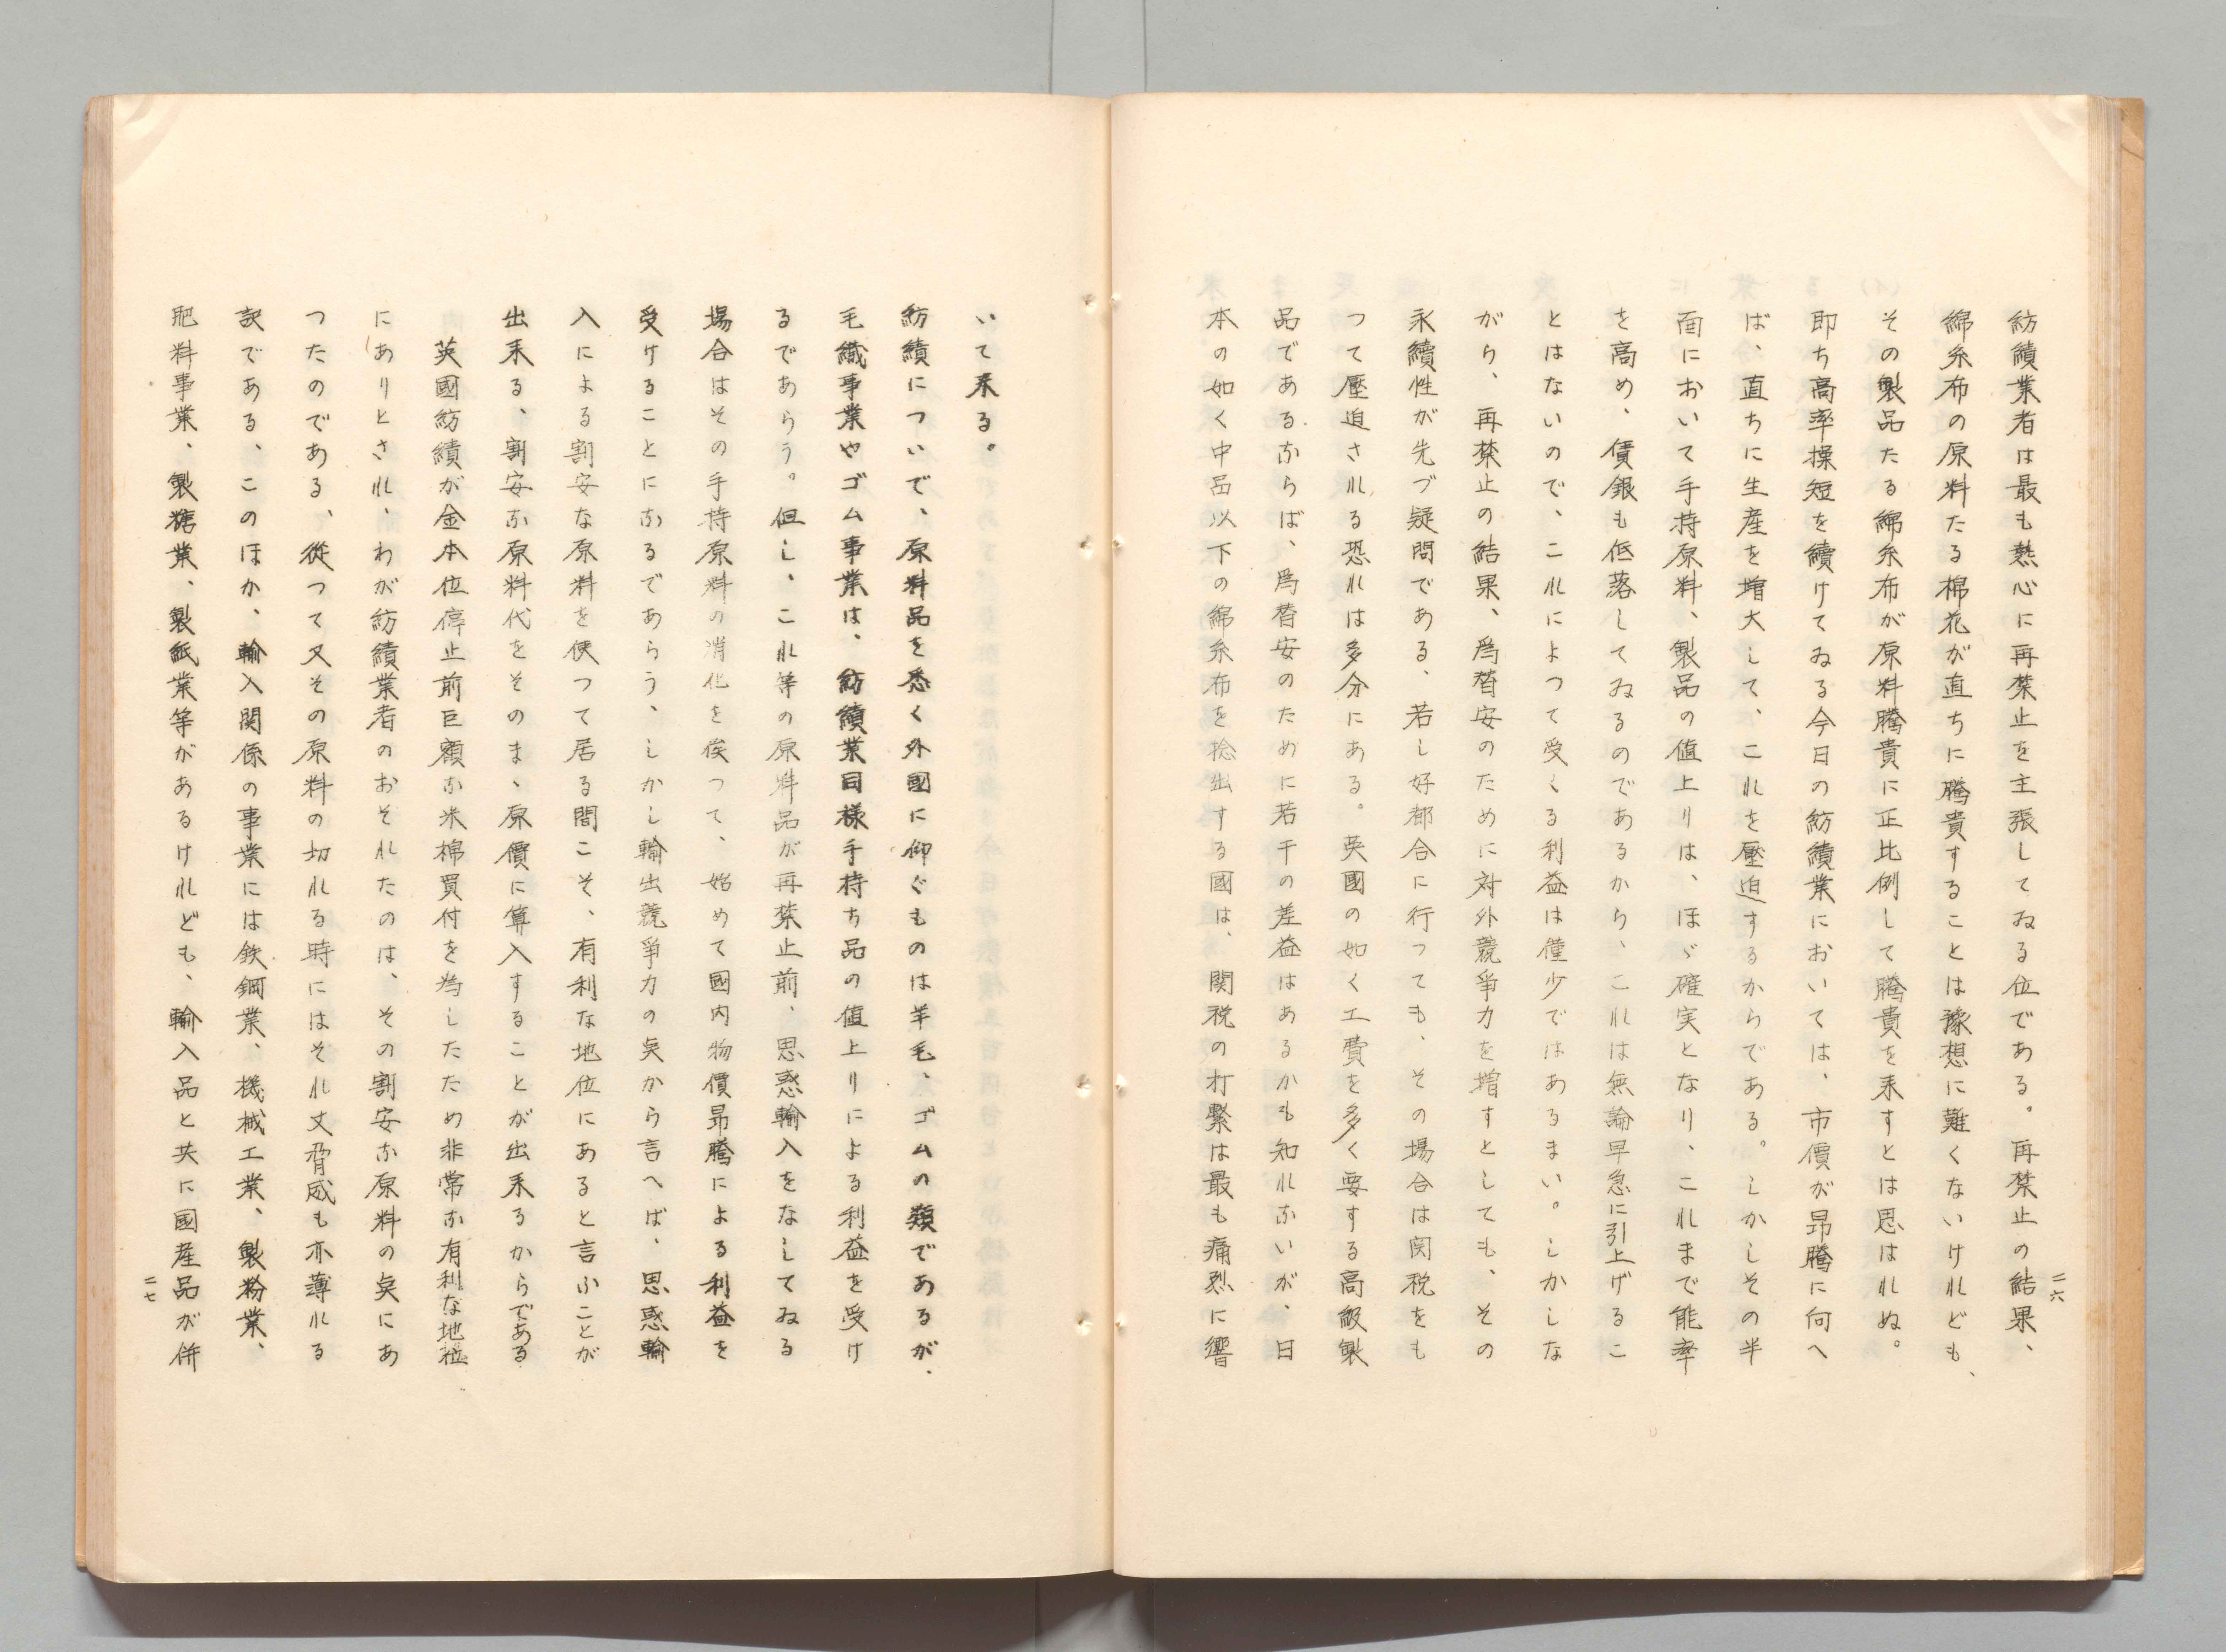 紡績業者は最も熱心に再禁止を主張してゐる位である。再禁止の結果、
綿糸布の原料たる棉花が直ちに騰貴することは豫想に難くないけれども、
その製品たる綿糸布が原料騰貴に正比例して騰貴を来すとは思はれぬ。
即ち高率操短を續けてゐる今日の紡績業においては、市價が昻騰に向へ
ば、直ちに生産を増大して、これを壓迫するからである。しかしその半
面において手持原料、製品の値上りは、ほゞ確実となり、これまで能率
を高め、賃銀も低落してゐるのであるから、これは無論早急に引上げるこ
とはないので、これによつて受くる利益は僅少ではあるまい。しかしな
がら、再禁止の結果、爲替安のために対外競爭力を増すとしても、その
永續性が先づ疑問である、若し好都合に行つても、その場合は関税をも
つて壓迫される恐れは多分にある。英國の如く工費を多く要する高級製
品であるならば、爲替安のために若干の差益はあるかも知れないが、日
本の如く中品以下の綿糸布を捻出する國は、関税の打繋は最も痛烈に響
二六
いて来る。
紡績についで、原料品を悉く外國に仰ぐものは羊毛、ゴムの類であるが、
毛織事業やゴム事業は、紡績業同様手持ち品の値上りによる利益を受け
るであらう。但し、これ等の原料品が再禁止前、思惑輸入をなしてゐる
場合はその手持原料の消化を俟つて、始めて國内物價昻騰による利益を
受けることになるであらう、しかし輸出競爭力の奌から言へば、思惑輸
入による割安な原料を使つて居る間こそ、有利な地位にあると言ふことが
出来る、割安な原料代をそのまゝ原價に算入することが出来るからである
英國紡績が金本位停止前巨額な米棉買付を為したため非常な有利な地位
にありとされ、わが紡績業者のおそれたのは、その割安な原料の奌にあ
つたのである、従つて又その原料の切れる時にはそれ丈脅威も亦薄れる
訳である、このほか、輸入関係の事業には鉄鋼業、機械工業、製粉業、
肥料事業、製糖業、製紙業等があるけれども、輸入品と共に國産品が併
二七